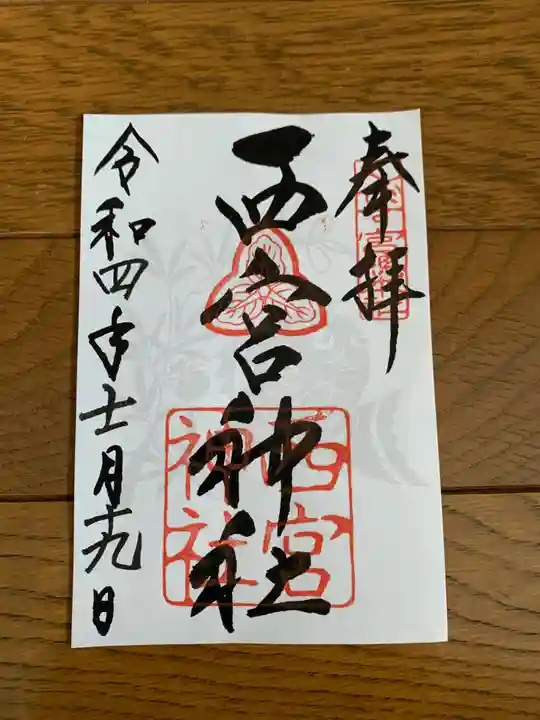 奉拝
西宮神社
西宮神社
令和四年十一月十九日